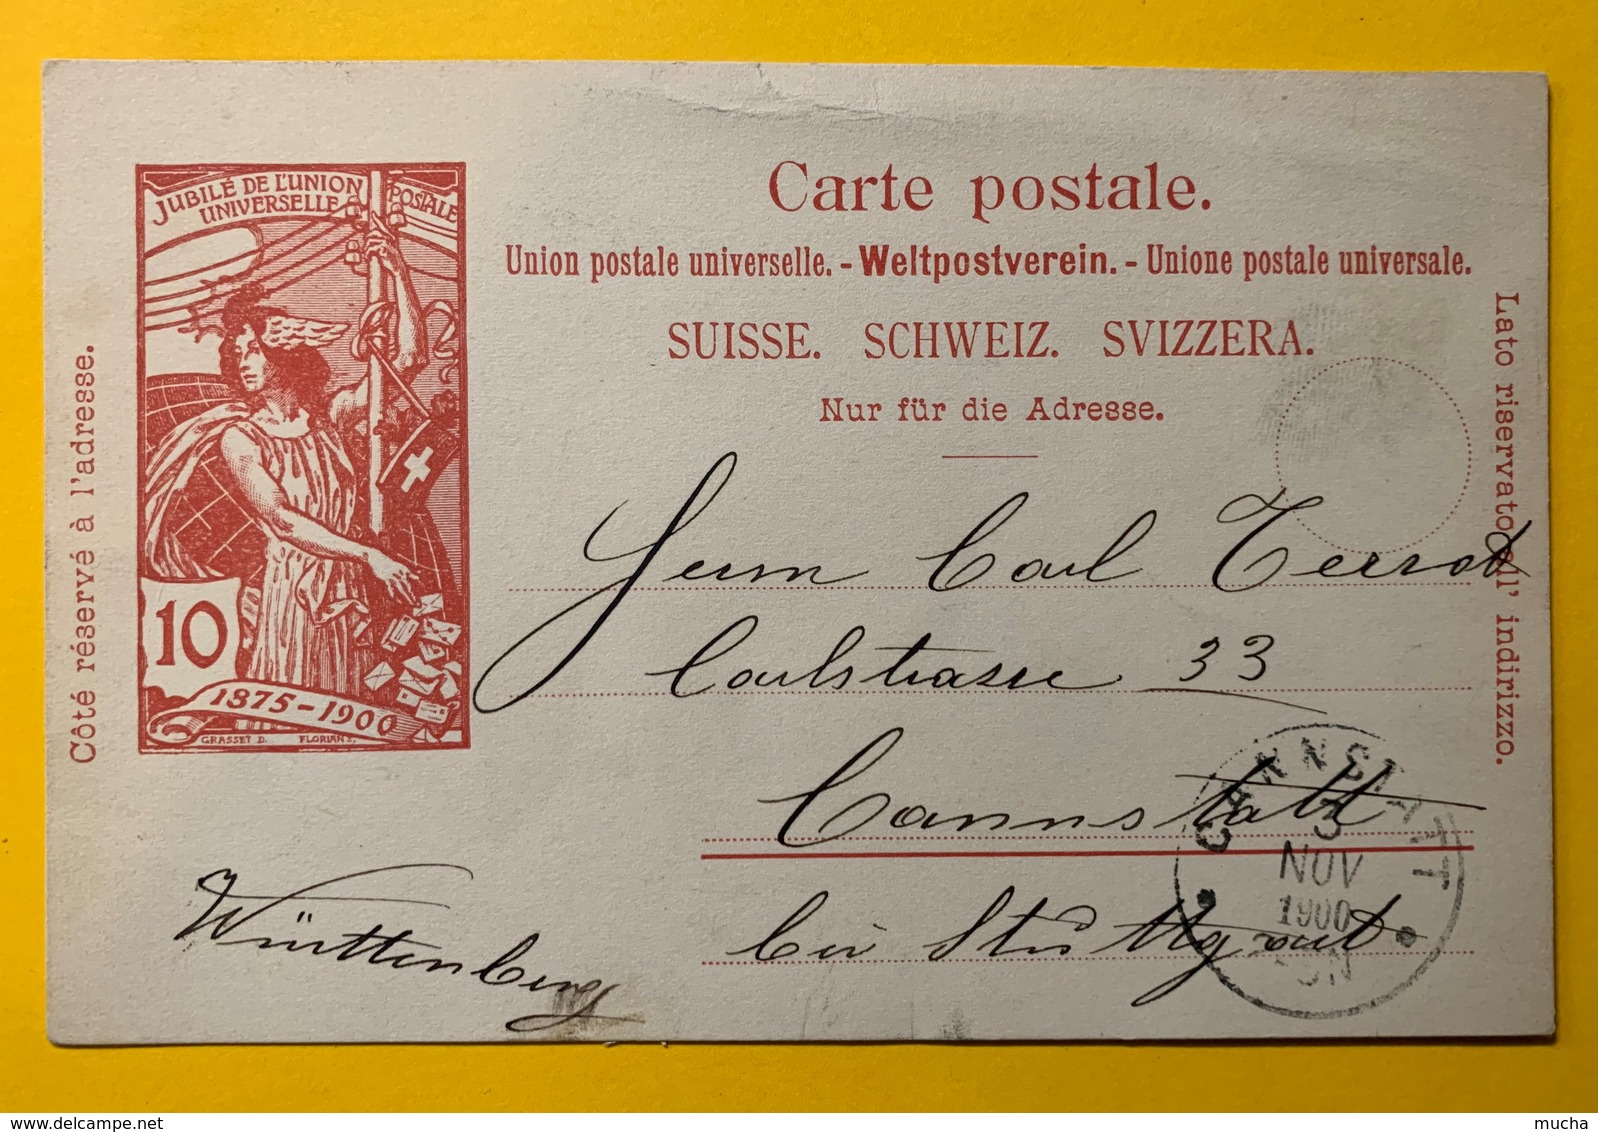 JUBILÉ DE L'UNION POSTALE
UNIVERSELLE
10
1875-1900
GRASSET D. FLORIAN S.
Côté réservé à l'adresse.
Carte postale.
Union postale universelle. - Weltpostverein. - Unione postale universale.
SUISSE. SCHWEIZ. SVIZZERA.
Nur für die Adresse.
Lato riservato all' indirizzo.
Herrn Carl Terrot
Carlstrasse 33
Cannstatt
bei Stuttgart
Württemberg
CANNSTATT
3
NOV
1900
mucha
delcampe.net